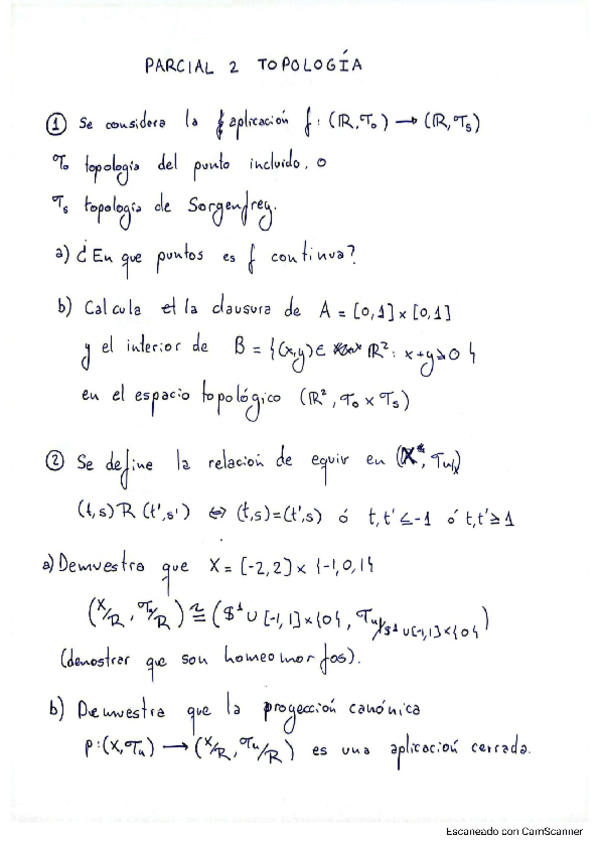 PARCIAL 2 TOPOLOGÍA
① Se considera la aplicación f: (ℝ, 𝒯₀) → (ℝ, 𝒯ₛ)
𝒯₀ topología del punto incluido. 0
𝒯ₛ topología de Sorgenfrey.
a) ¿En que puntos es f continua?
b) Calcula la clausura de A = [0,1] × [0,1]
y el interior de B = {(x,y) ∈ ℝ²: x+y≥0}
en el espacio topológico (ℝ², 𝒯₀ × 𝒯ₛ)
② Se define la relación de equiv en (X, 𝒯u/x)
(t,s) R (t',s') ⇔ (t,s)=(t',s) ó t,t' ≤ -1 ó t,t' ≥ 1
a) Demuestra que X = [-2,2] × {-1,0,1}
(X/R, 𝒯u/R) ≅ (𝕊¹ ∪ [-1,1]×{0}, 𝒯u/𝕊¹∪[-1,1]×{0})
(demostrar que son homeomorfos).
b) Demuestra que la proyección canónica
p: (X, 𝒯u) → (X/R, 𝒯u/R) es una aplicación cerrada.
Escaneado con CamScanner